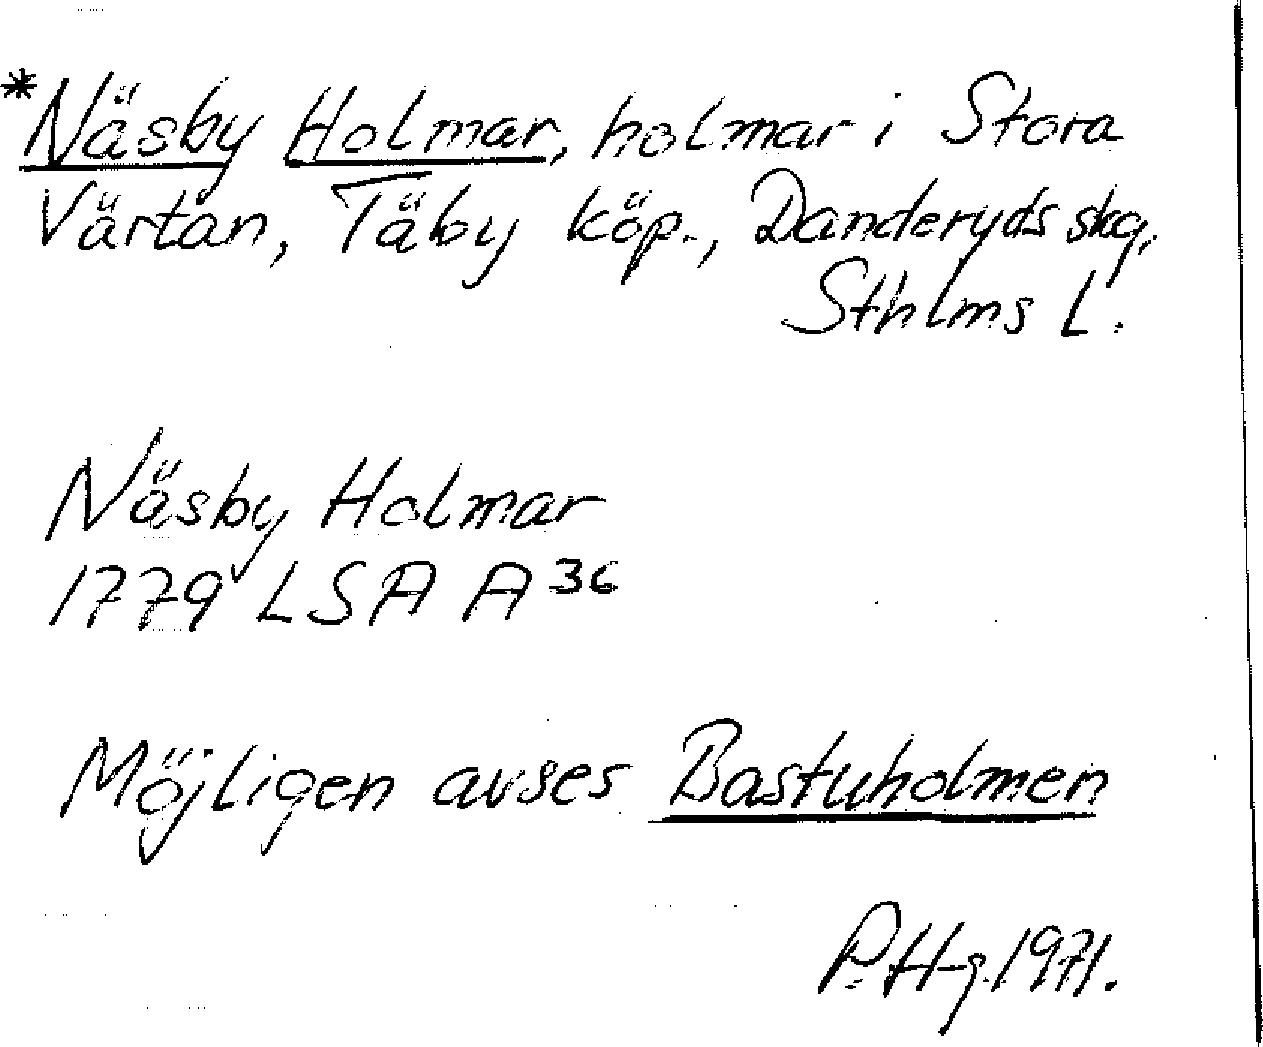 *Näsby Holmar, holmar i Stora
Värtan, Täby köp., Danderyds skg,
Sthlms L.
Näsby Holmar
1779 LSA A 36
Möjligen avses Bastuholmen
P. H-g. 1971.